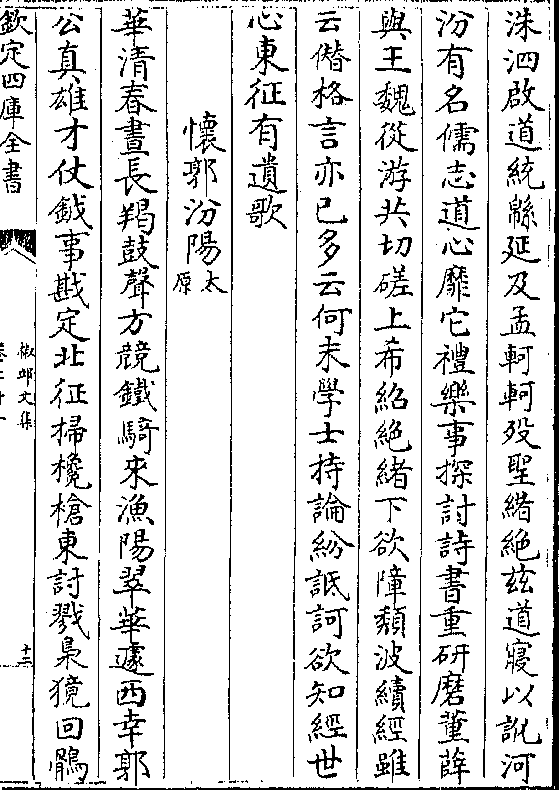 洙泗啟道統緜延及孟軻軻歿聖緒絶兹道寢以訛河
汾有名儒志道心靡它禮樂事探討詩書重研磨董薛
與王魏從游共切磋上希紹絶緒下欲障頽波續經雖
云僭格言亦已多云何末學士持論紛詆訶欲知經世
心東征有遺歌
懷郭汾陽太原
華清春晝長羯鼓聲方競鐵騎來漁陽翠華遽西幸郭
公真雄才仗鉞事戡定北征掃欃槍東討戮梟獍回鶻
欽定四庫全書
椒邱文集
卷二十一
十二